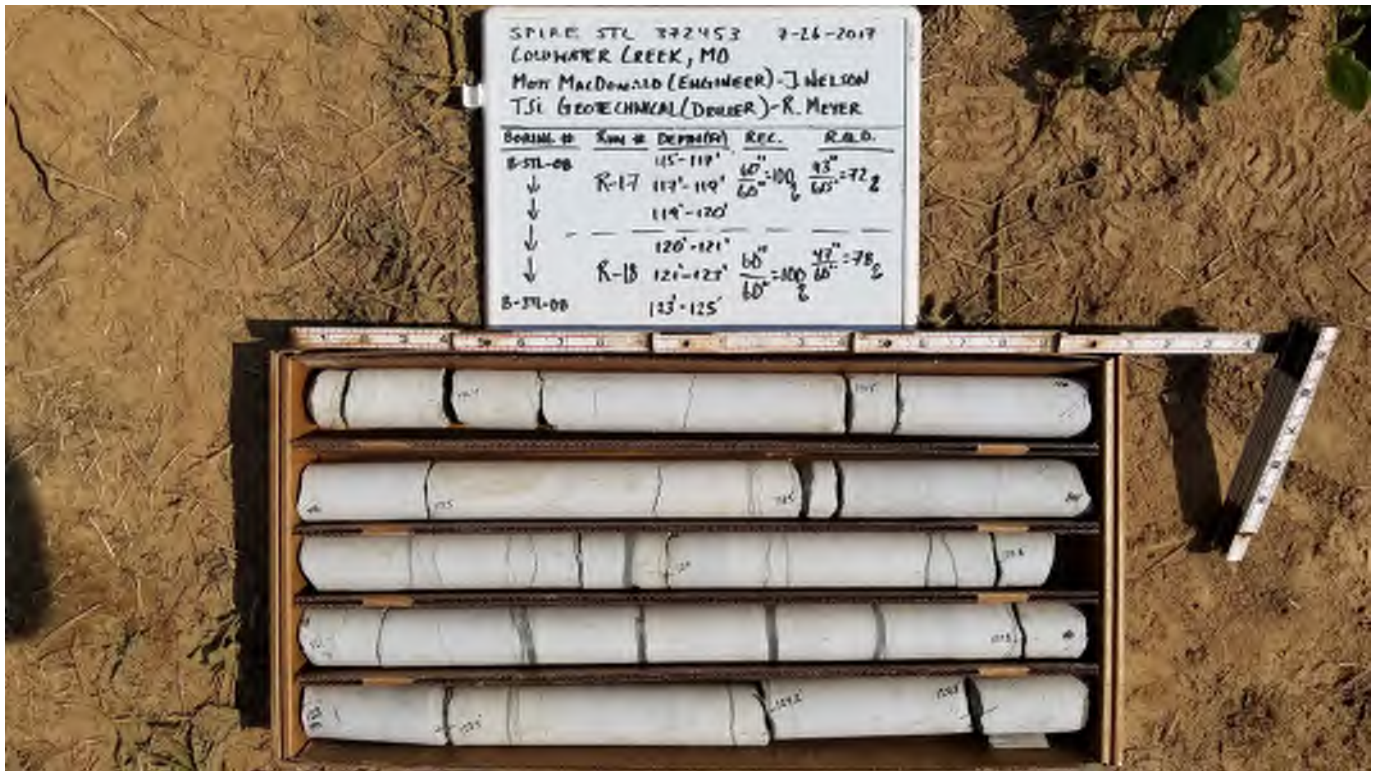 SPIRE STL 372453 7-26-2017
COLDWATER CREEK, MO
MOTT MACDONALD (ENGINEER)-J. NELSON
TSi GEOTECHNICAL (DRILLER)-R. MEYER
BORING # RUN # DEPTH(FT) REC. R.Q.D.
B-STL-08 R-17 115'-117' 60"/60"=100% 43"/60"=72%
117'-119'
119'-120'
120'-121'
R-18 121'-123' 60"/60"=100% 47"/60"=78%
B-STL-08 123'-125'